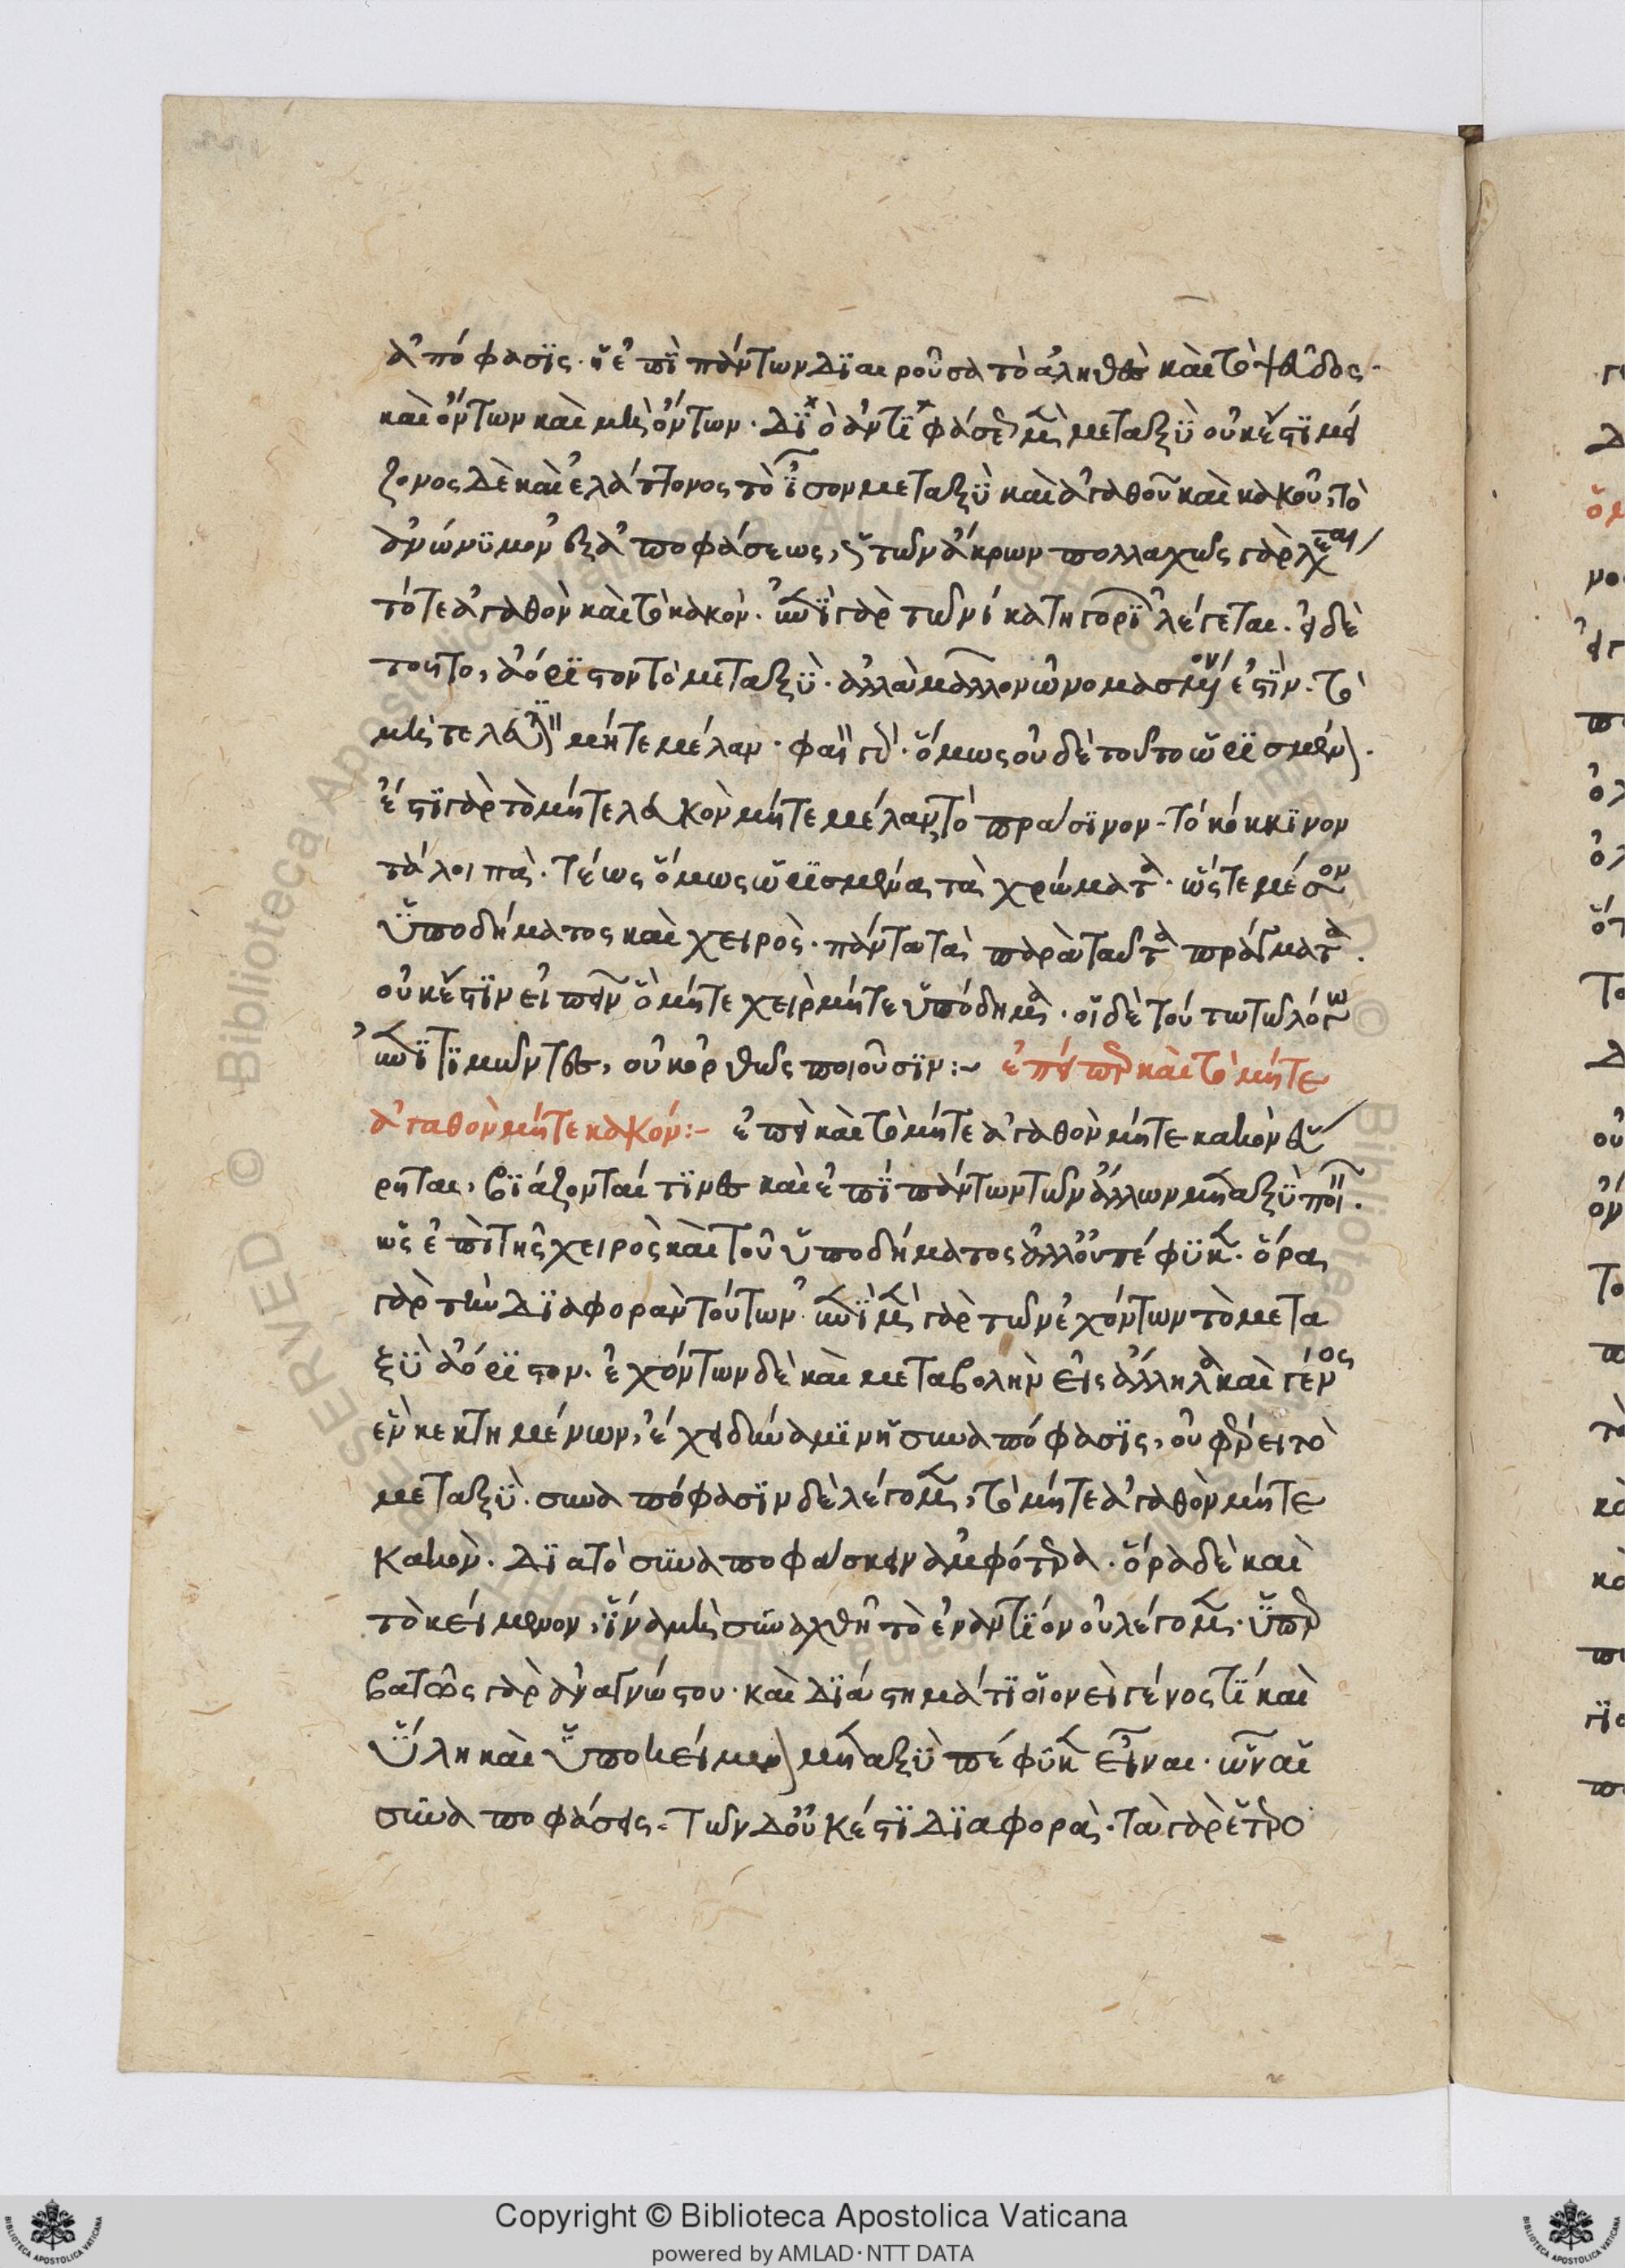 ἀπόφασις· ἡ ἐπὶ πάντων διαιροῦσα τὸ ἀληθὲς καὶ τὸ ψεῦδος·
καὶ ὄντων καὶ μὴ ὄντων· διὸ ἀντιφάσεως μὲν μεταξὺ οὐκ ἔστι μεί
ζονος δὲ καὶ ἐλάττονος τὸ ἴσον μεταξὺ καὶ ἀγαθοῦ καὶ κακοῦ, τὸ
ἀνώνυμον ἐξ ἀποφάσεως, τῶν ἄκρων πολλαχῶς γὰρ λέγεται
τό τε ἀγαθὸν καὶ τὸ κακόν· ἐπὶ γὰρ τῶν ι κατηγοριῶν λέγεται·
τοῦτο, ἀόριστον τὸ μεταξύ· ἀλλὰ μᾶλλον ὠνομασμένον ἐστὶν· τὸ
μήτε λευκὸν μήτε μέλαν· φαιὸν γάρ· ὅμως οὐδὲ τοῦτο ὥρισμένον·
ἔστι γὰρ τὸ μήτε λευκὸν μήτε μέλαν τὸ πράσινον· τὸ κόκκινον
τὰ λοιπά· τέως ὅμως ὡρισμένα τὰ χρώματα· ὥστε μέσον
ὑποδήματος καὶ χειρὸς· πάντα τὰ παρὰ ταῦτα πράγματα·
οὐκ ἔστιν εἰπεῖν ὃ μήτε χεὶρ μήτε ὑπόδημα· οἱ δὲ τούτω τῶ λόγω
ἐπιτιμῶντες, οὐκ ὀρθῶς ποιοῦσιν:~ ἐπείπερ καὶ τὸ μήτε
ἀγαθὸν μήτε κακόν:~ ἐπεὶ καὶ τὸ μήτε ἀγαθὸν μήτε κακὸν εὕ
ρηται, βιάζονταί τινες καὶ ἐπὶ πάντων τῶν ἄλλων μεταξὺ ποιεῖν·
ὡς ἐπὶ τῆς χειρὸς καὶ τοῦ ὑποδήματος ἀλλ' οὐ πέφυκεν· ὅρα
γὰρ τὴν διαφορὰν τούτων· ἐπὶ μὲν γὰρ τῶν ἐχόντων τὸ μετα
ξὺ ἀόριστον· ἐχόντων δὲ καὶ μεταβολὴν εἰς ἄλληλα καὶ γένος
ἓν κεκτημένων, ἔχει δύναμιν ἡ συναπόφασις, οὗ φέρει τὸ
μεταξύ· συναπόφασιν δὲ λέγομεν, τὸ μήτε ἀγαθὸν μήτε
κακὸν· διὰ τὸ συναποφάσκειν ἀμφότερα· ὅρα δὲ καὶ
τὸ κείμενον, ἵνα μὴ συναχθῆ τὸ ἐναντίον οὗ λέγομεν· ὑπερ
βατῶς γὰρ ἀναγνώστου· καὶ διάστημά τι οἱονεὶ γένος τί καὶ
ὕλη καὶ ὑποκείμενον μεταξὺ πέφυκεν εἶναι· ὧν αἱ
συναποφάσεις· τῶν δ' οὐκ ἔστι διαφορὰ· τὰ γὰρ ἑτερο